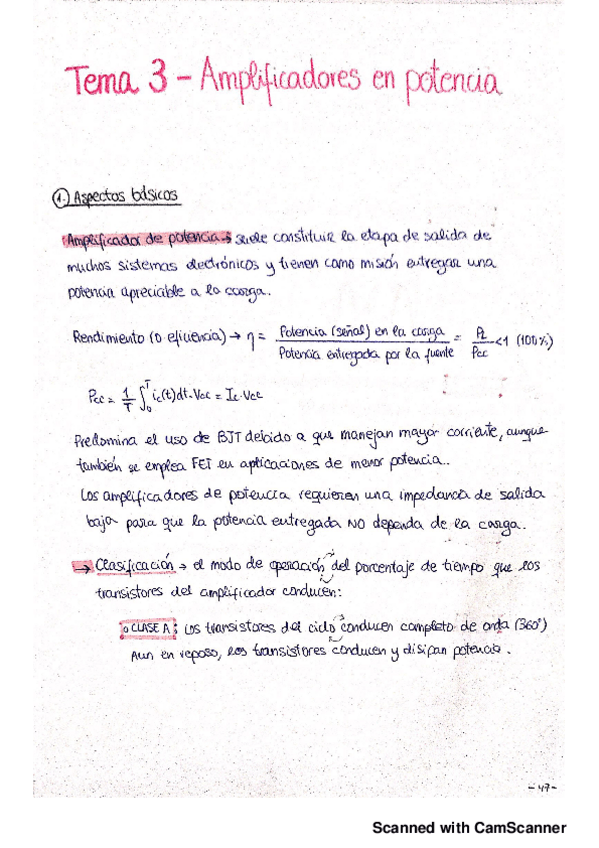 Tema 3 - Amplificadores en potencia
1.) Aspectos básicos
Amplificador de potencia → suele constituir la etapa de salida de
muchos sistemas electrónicos y tienen como misión entregar una
potencia apreciable a la carga.
Rendimiento (o eficiencia) → η = Potencia (señal) en la carga / Potencia entregada por la fuente = PL / Pcc < 1 (100%)
Pcc = 1/T ∫₀ᵀ ic(t)dt · Vcc = Ic · Vcc
Predomina el uso de BJT debido a que manejan mayor corriente, aunque
también se emplea FET en aplicaciones de menor potencia..
Los amplificadores de potencia requieren una impedancia de salida
baja para que la potencia entregada NO dependa de la carga.
→ Clasificación → el modo de operación del porcentaje de tiempo que los
transistores del amplificador conducen:
o CLASE A: Los transistores del ciclo conducen completo de onda (360°)
Aun en reposo, los transistores conducen y disipan potencia.
- 47 -
Scanned with CamScanner